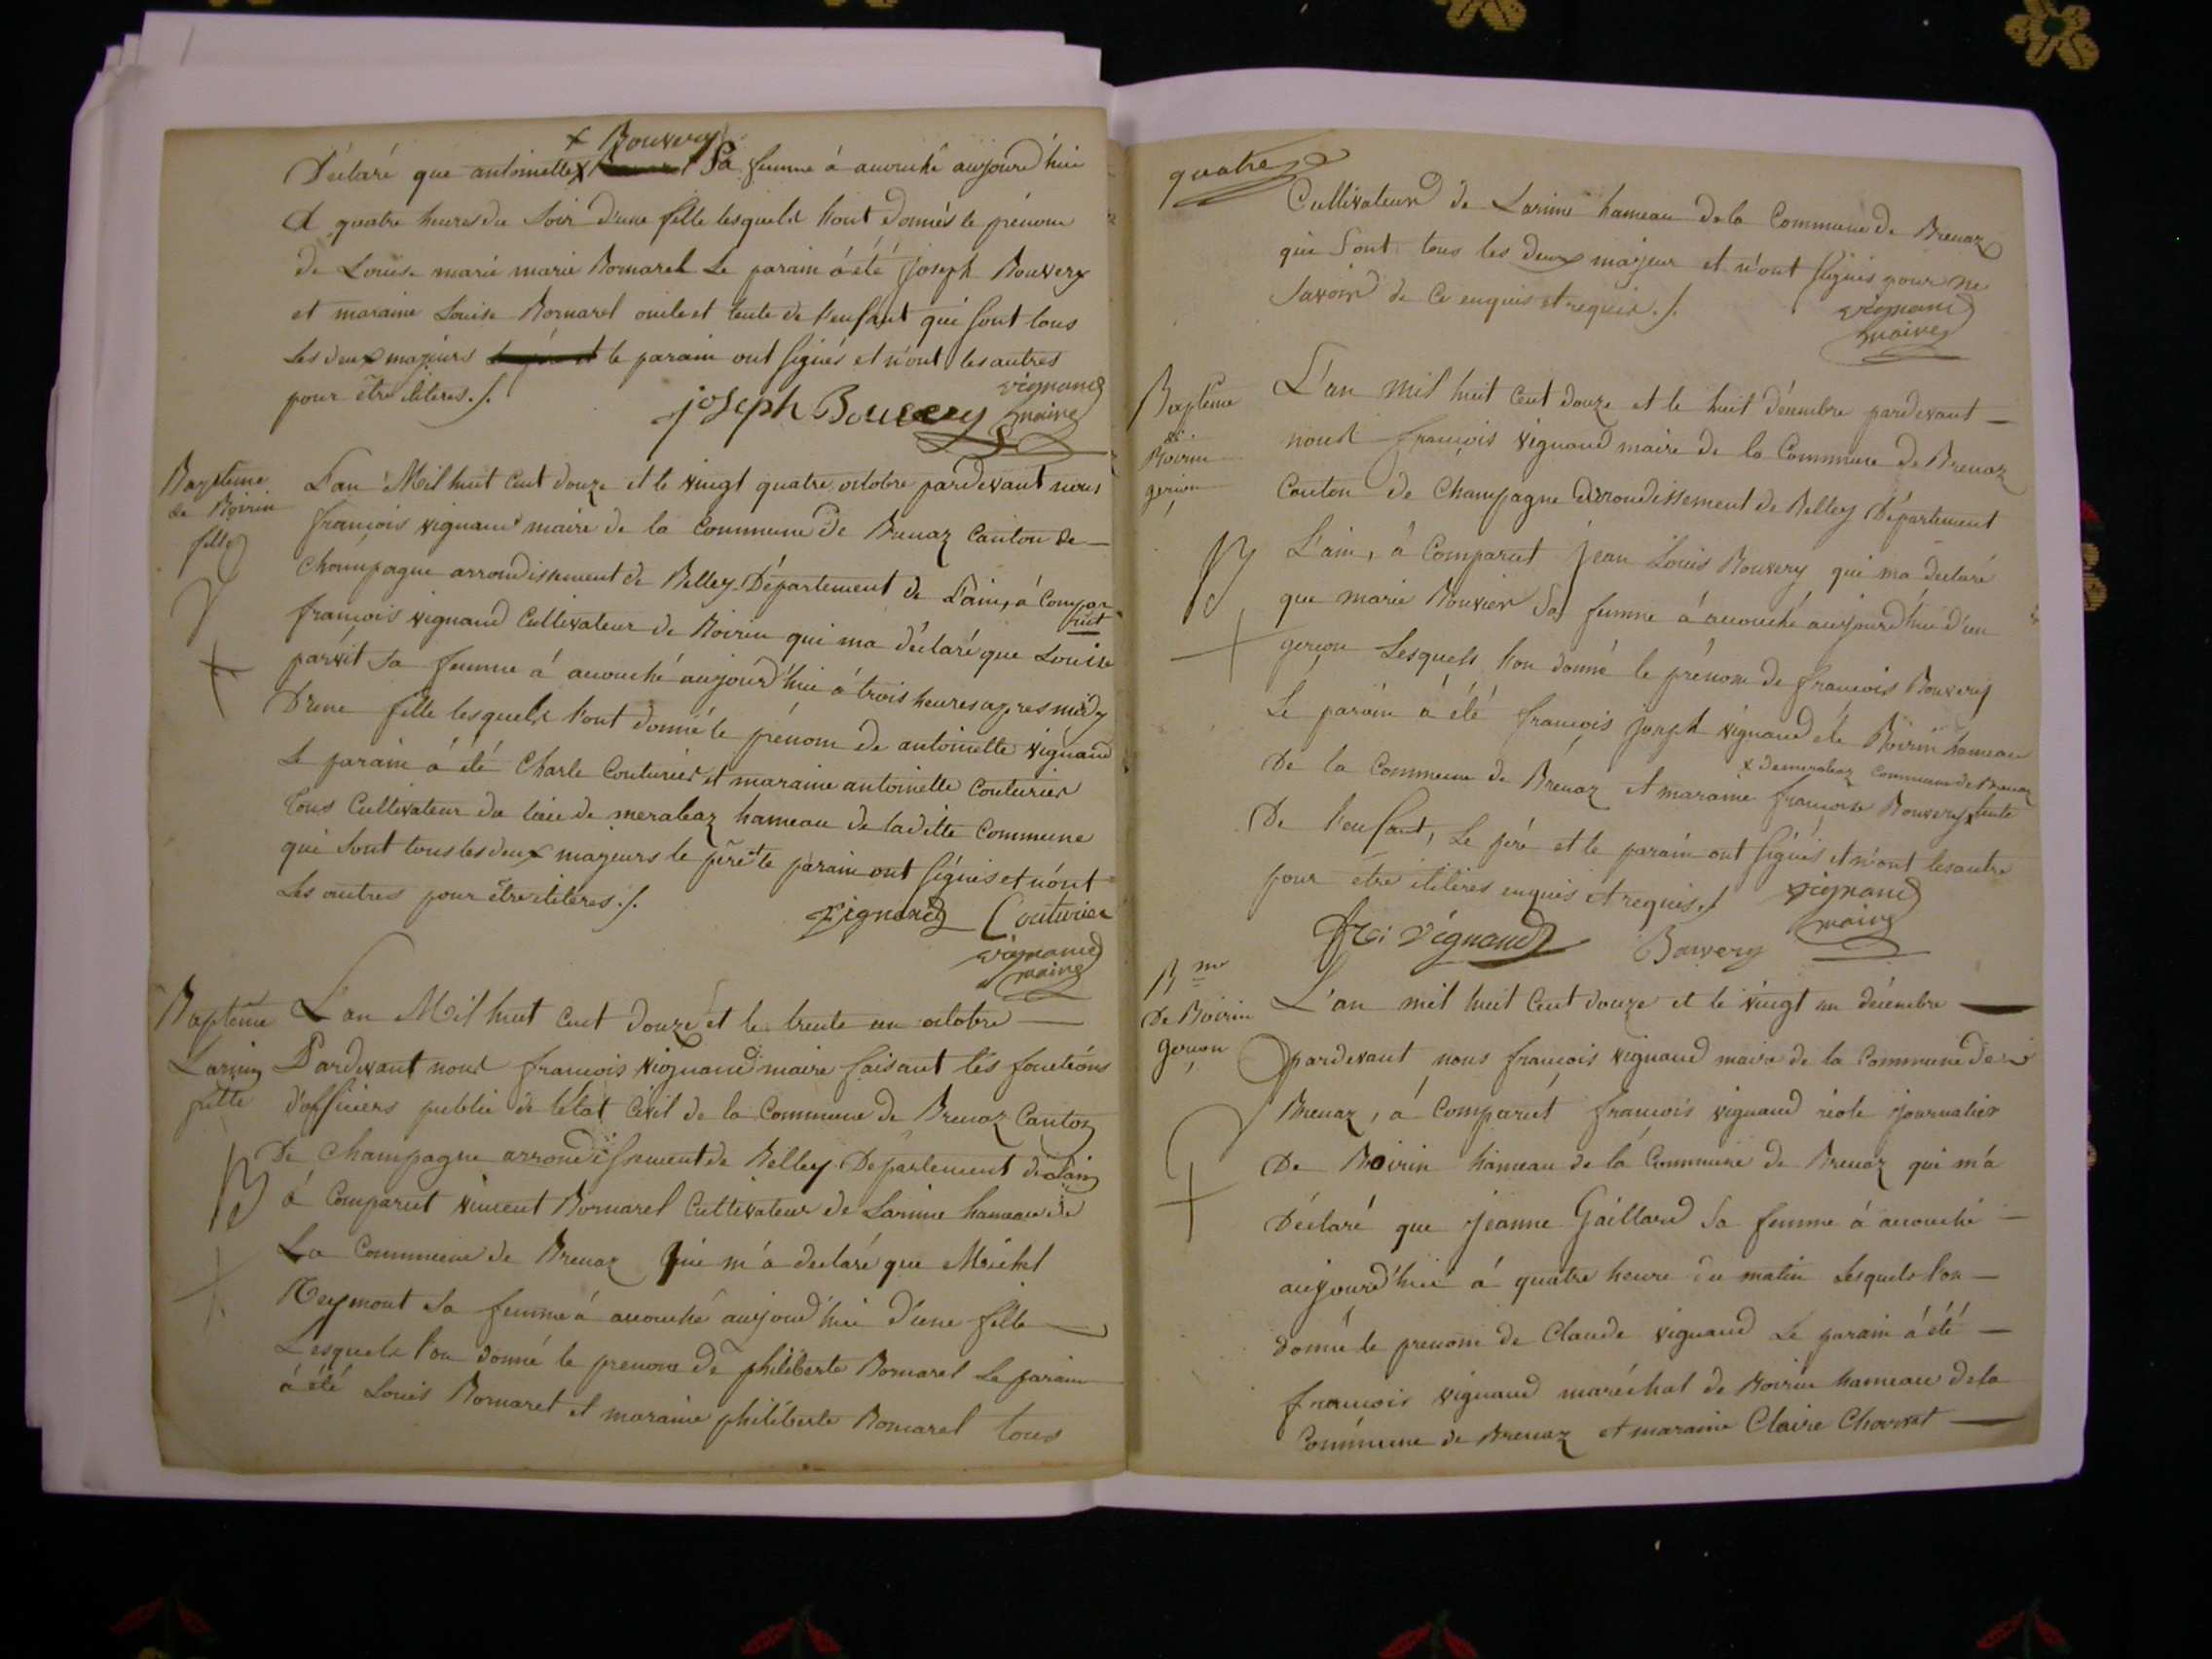 + Bouvery
Déclaré que antoinette x sa femme á accouché aujourd'hui
A quatre heures du soir d'une fille lesquels l'ont donnés le prénom
de Louise marie marie Bornarel Le parain á été joseph Bouvery
et maraine Louise Bornarel oncle et tente de l'enfant qui sont tous
les deux majeurs le parain ont signés et n'ont les autres
pour être iliteres ./.
joseph Bouvery
vignand
maire
Baptême
de Boirin
fille
L'an Mil huit Cent douze et le vingt quatre octobre pardevant nous
françois vignand maire de la Commune de Brenaz Canton de —
Champagne arrondissement de Belley Département de L'ain, á Compa-
rut
françois vignand Cultivateur de Boirin qui ma déclaré que Louise
parvit sa femme á accouché aujourd'hui á trois heures apres midy
D'une fille lesquels l'ont donné le prénom de antoinette vignand
Le parain á été Charle Couturier et maraine antoinette Couturier
Tous Cultivateur du lieu de meraleaz hameau de laditte Commune
qui sont tous les deux majeurs le père et le parain ont signés et n'ont
Les autres pour être iliteres ./.
vignand Couturier
vignand
maire
Baptême
Larinie
fille
L'an Mil huit Cent douze et le trente un octobre —
Pardevant nous francois vignand maire faisant les fonctions
d'officiers public de l'état Civil de la Commune de Brenaz Canton
De Champagne arrondissement de Belley Département de lain
á Comparut vincent Bornarel Cultivateur de Larinie hameau de
La Commune de Brenaz qui m'a declaré que Michel
Reymont sa femme á accouché aujourd'hui d'une fille
Lesquels l'on donné le prenom de philiberte Bornarel Le parain
á été Louis Bornarel et maraine philiberte Bornarel tous
quatre
Cultivateur de Larinie hameau dela Commune de Brenaz
qui sont tous les deux majeur et n'ont signés pour ne
savoir de Ce enquis et requis ./.
vignand
maire
Baptême
de
Boirin
gerçon
L'an mil huit Cent douze et le huit décembre pardevant —
nous françois vignand maire de la Commune de Brenaz
Canton de Champagne arrondissement de Belley Département
L'ain, á Comparut jean Louis Bouvery qui ma declaré
que marie Bouvier sa femme á accouché aujourd'hui d'un
gerçon Lesquels l'on donné le prénom de françois Bouvery
Le parain á été francois joseph vignand de Boirin hameau
x demeraleaz Commune de Brenaz
De la Commune de Brenaz et maraine françoise Bouvery x tente
De l'enfant, Le péré et le parain ont signés et n'ont les autre
pour être ilitéres enquis et requis ./.
vignand
maire
fcois vignand Bouvery
B.me
De Boirin
gerçon
L'an mil huit Cent douze et le vingt un décembre —
pardevant nous françois vignand maire de la Commune de
Brenaz, á Comparut francois vignand journalier
De Boirin hameau de la Commune de Brenaz qui m'a
Déclaré que jeanne Gaillard sa femme á accouché —
aujourd'hui á quatre heure du matin Lesquels l'on —
donné le prenom de Claude vignand Le parain á été —
francois vignand maréchal de Boirin hameau dela
Commune de Brenaz et maraine Claire Charvet —